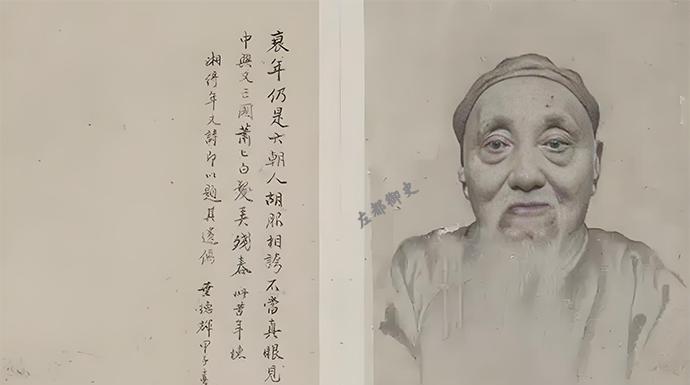 衰年仍是六朝人胡服相誇不當真眼見
中興又亡國蕭〻白髮殘春 此昔年挽
湘綺年丈詩即以題其遺像 葉德輝 甲子春
左都御史